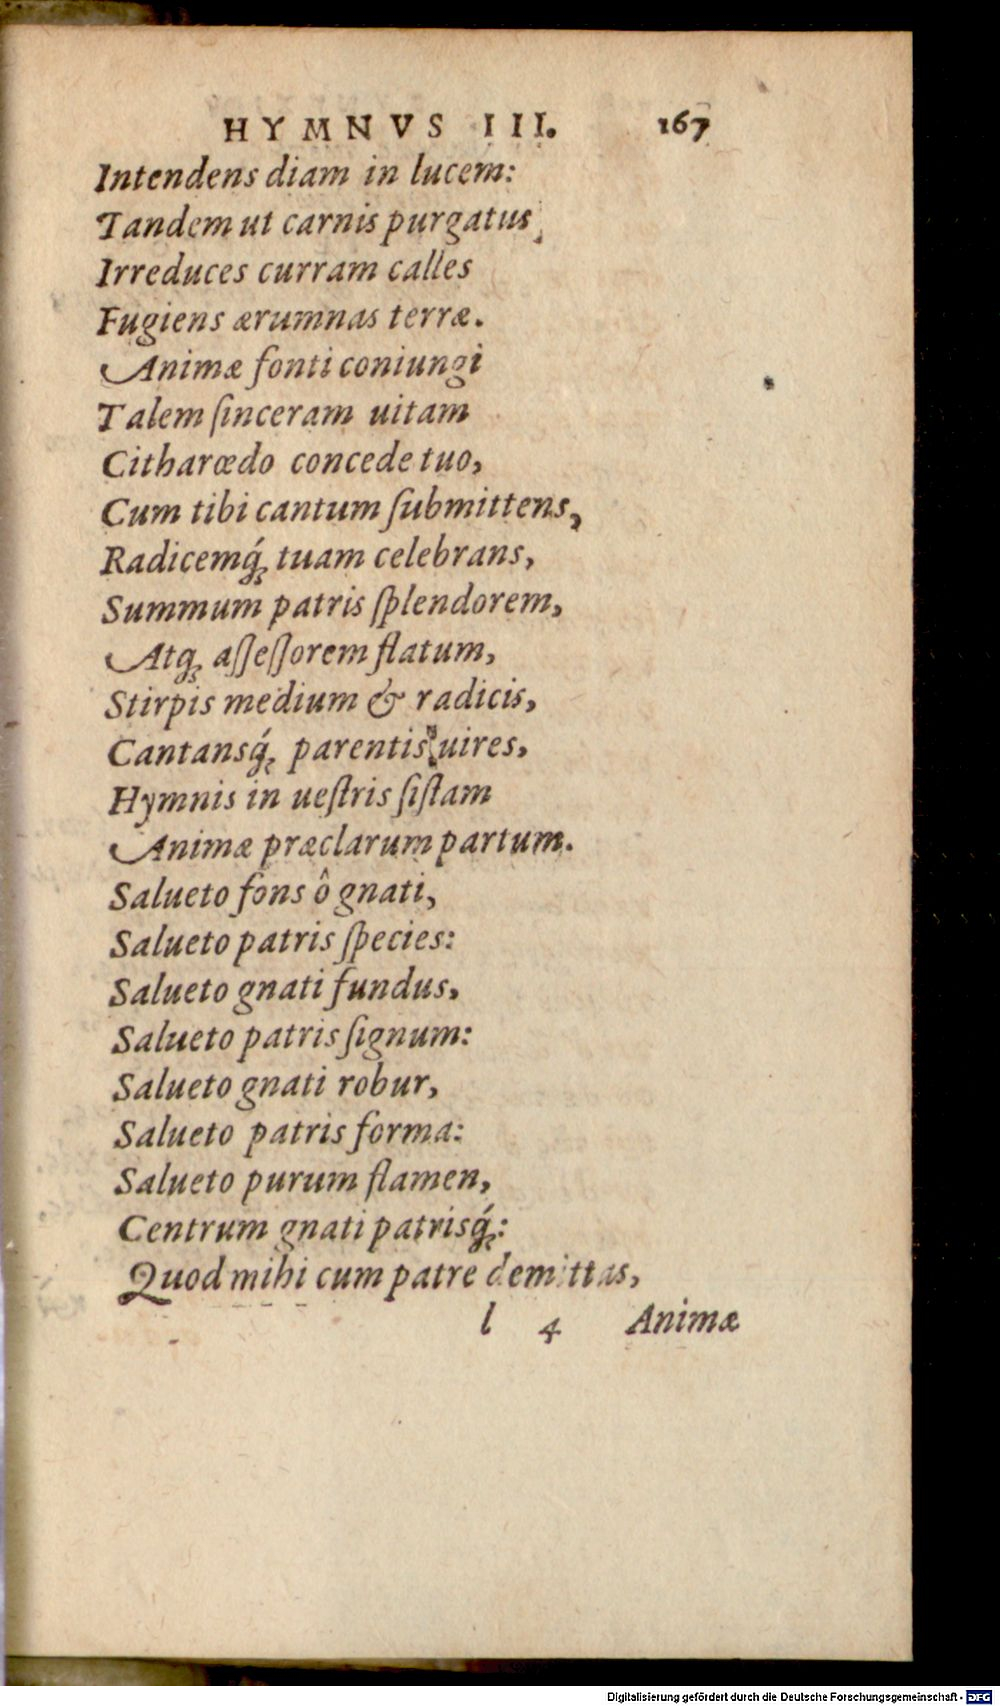 HYMNVS III. 167
Intendens diam in lucem:
Tandem ut carnis purgatus,
Irreduces curram calles
Fugiens ærumnas terræ.
Animæ fonti coniungi
Talem ſinceram uitam
Citharœdo concede tuo,
Cum tibi cantum ſubmittens,
Radicemq́; tuam celebrans,
Summum patris ſplendorem,
Atq; aſſeſſorem flatum,
Stirpis medium & radicis,
Cantansq́; parentis uires,
Hymnis in ueſtris ſiſtam
Animæ præclarum partum.
Salueto fons ô gnati,
Salueto patris ſpecies:
Salueto gnati fundus,
Salueto patris ſignum:
Salueto gnati robur,
Salueto patris forma:
Salueto purum flamen,
Centrum gnati patrisq́;:
Quod mihi cum patre demittas,
l 4 Animæ
Digitalisierung gefördert durch die Deutsche Forschungsgemeinschaft - DFG